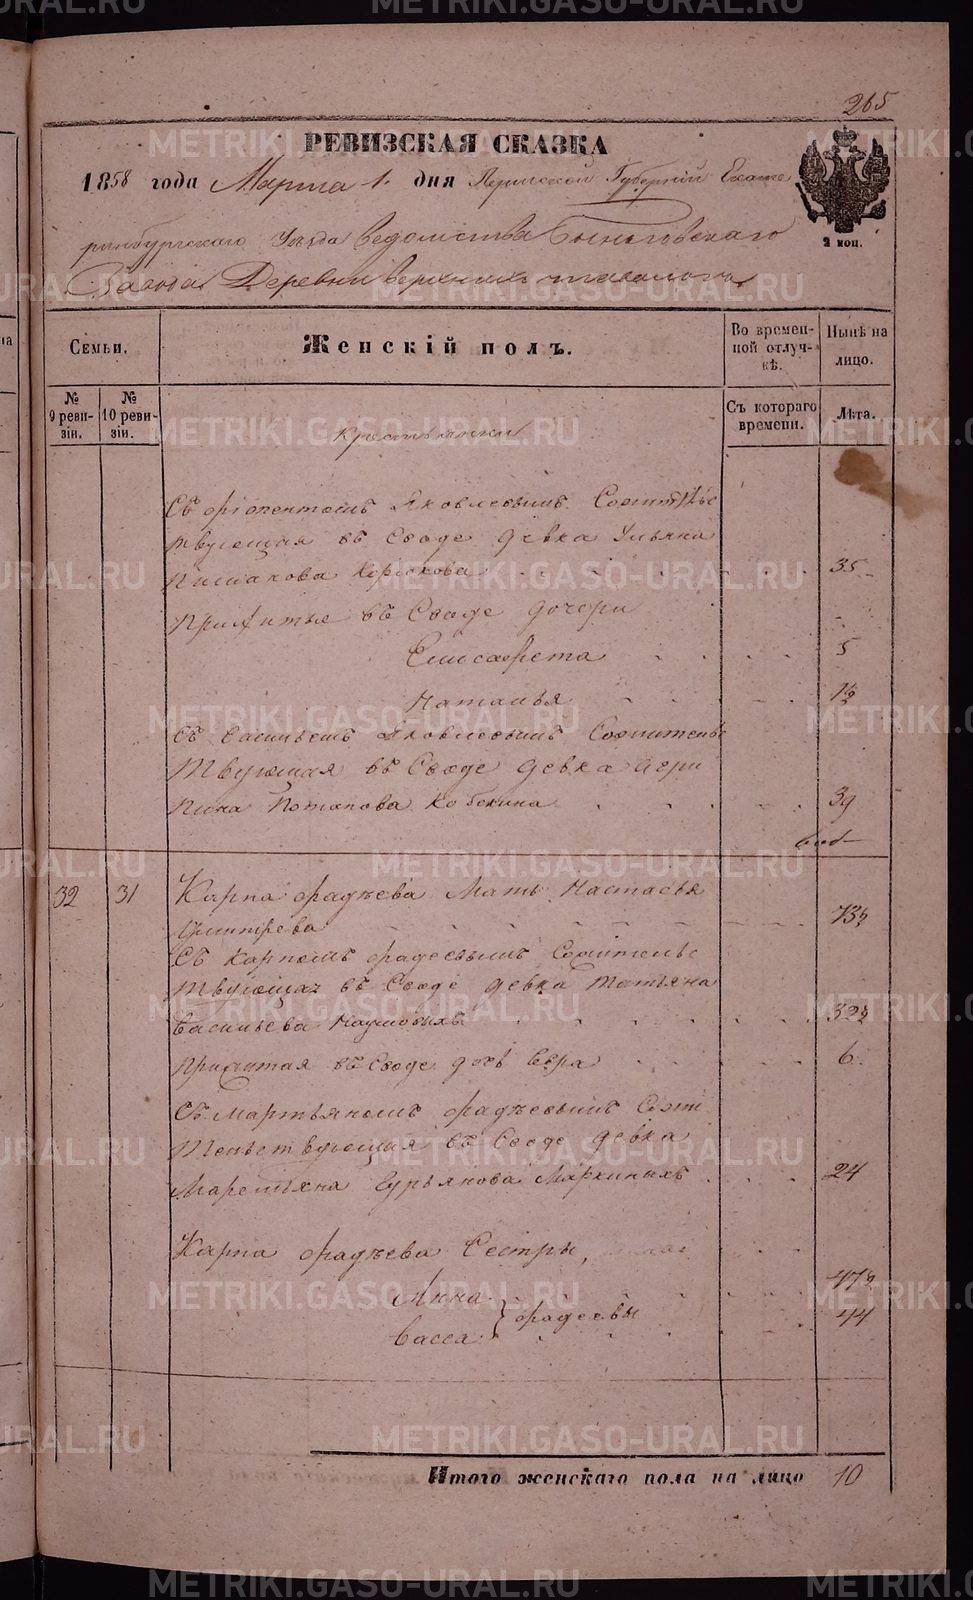 265
РЕВИЗСКАЯ СКАЗКА
1858 года Марта 1. дня Пермской Губерніи Екате
ринбургскаго Уезда ведомства Быньговскаго
Завода Деревни верхнихъ
2 коп.
Семьи.
Женскій полъ.
Во времен-
ной отлуч-
кѣ.
Нынѣ на
лицо.
№
9 реви-
зіи.
№
10 реви-
зіи.
Съ котораго
времени.
Лѣта.
крестьянки
Съ Яковлевымъ Сожитель
твующая въ Сводѣ девка Ульяна
35
Прижитые въ Сводѣ дочери
Елисавета 5
Наталья 1½
Съ Васильемъ Яковлевымъ Сожительс
твующая въ Сводѣ девка Агри
пина Потапова Кобекина 39
32 31 Карпа фадѣева Мать Настасья
73½
Съ Карпомъ фадеевымъ Сожительс
твующая въ Сводѣ девка Татьяна
васильева Наумовыхъ 32½
прижитая въ Сводѣ дочь Вѣра 6
Съ Мартьяномъ фадѣевымъ Сожи
тельствующая въ Сводѣ девка
Маремьяна Гурьянова Маркиныхъ 24
Карпа фадѣева Сестры,
Анна 47½
васса } фадеевы 44
Итого женскаго пола на лицо 10
METRIKI.GASO-URAL.RU